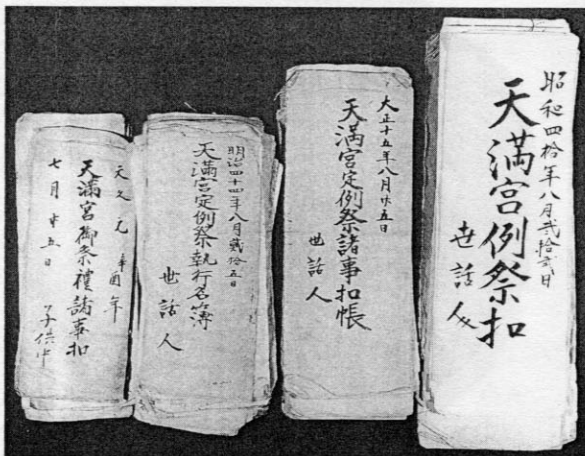 昭和四拾年八月弐拾弐日
天満宮例祭扣
世話人
大正十五年八月廿五日
天満宮定例祭諸事扣帳
世話人
明治四十四年八月貳拾五日
天満宮定例祭執行名簿
世話人
文久元 辛酉年
天満宮御祭禮諸事扣
七月廿五日 子供中